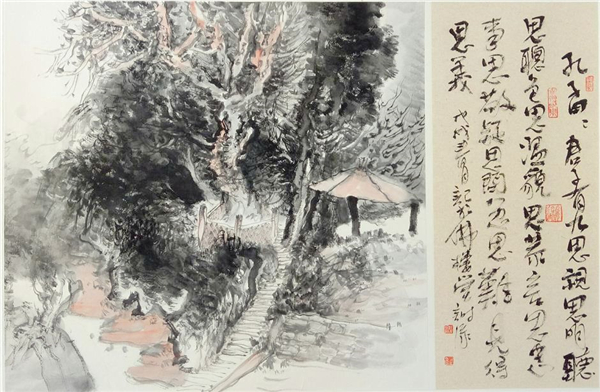 孔子曰君子有九思視思明聽
思聰色思温貌思恭言思忠
事思敬疑思問忿思難見得
思義
戊戌